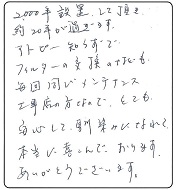 2000年設置して頂き
約20年が過ぎます。
アトピー知らずです。
フィルターの交換の
毎回同じメンテナンス
工事店の方なので、とても
安心して、
本当に喜んでおります。
ありがとうございます。